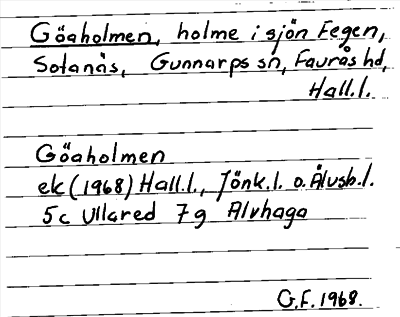 Göaholmen, holme i sjön Fegen,
Sotanås, Gunnarps sn, Faurås hd,
Hall.l.
Göaholmen
ek (1968) Hall.l., Jönk.l. o. Älvsb.l.
5c Ullared 7g Alvhaga
G.F. 1968.